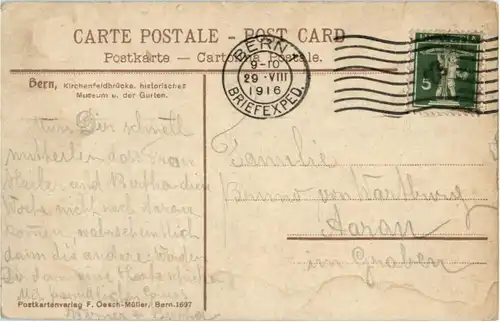 CARTE POSTALE - POST CARD
Postkarte - Cartolina Postale.
Bern, Kirchenfeldbrücke, historisches
Museum u. der Gurten.
BERN
9-10
29·VIII
1916
BRIEFEXPED.
5
schnell
mitteilen dass man
und Bertha diese
Woche nicht nach Aarau
kommen, wahrscheintlich
dann die andere Woche.
dann eine Karte schicken
Mit freundlichen
Familie
Bruno von Wartburg
Aarau
im Graben
Postkartenverlag F. Oesch-Müller, Bern. 1697